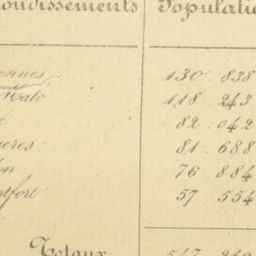 ondissements Populatio
ennes 130 838
Malo 118 243
82 042
ères 81 688
on 76 884
tfort 57 554
Totaux 547 249